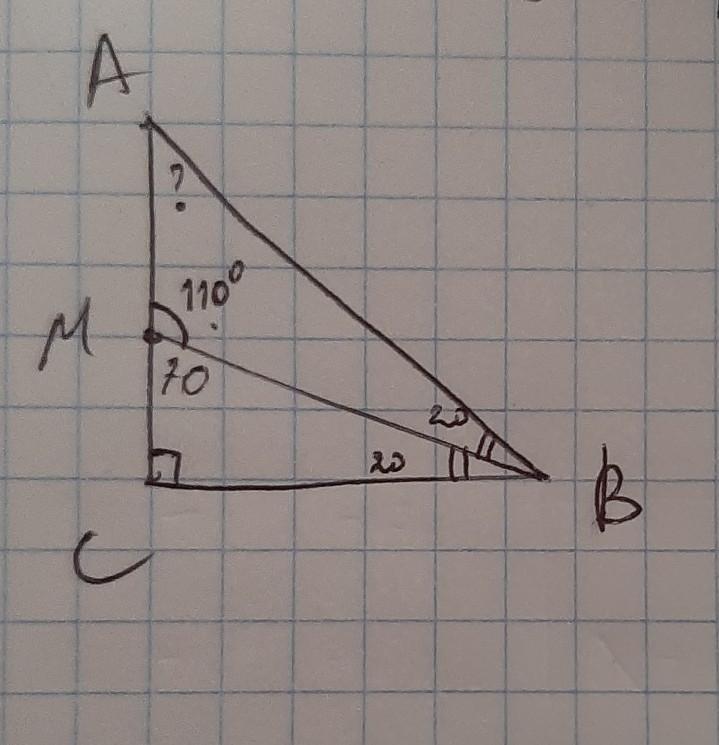 A
?
110°
M
70
20
20
B
C